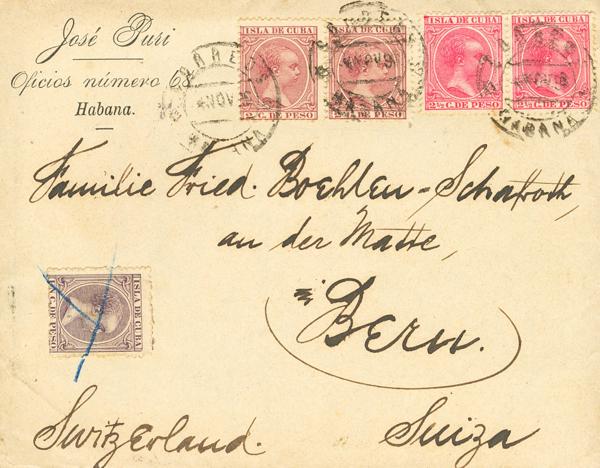 José Puri
Oficios número
Habana.
ISLA DE CUBA
2 C. DE PESO
ISLA DE CUBA
C. DE PESO
ISLA DE CUBA
2½ C. DE PESO
ISLA DE CUBA
2½ C. DE PESO
CORREOS
NOV
HABANA
CORREOS
NOV 9
HABANA
CORREOS
NOV 9
HABANA
Familie Fried. Boehlen-Schafroth,
an der Matte,
in
Bern.
ISLA DE CUBA
UN C. DE PESO
Switzerland.
Suiza